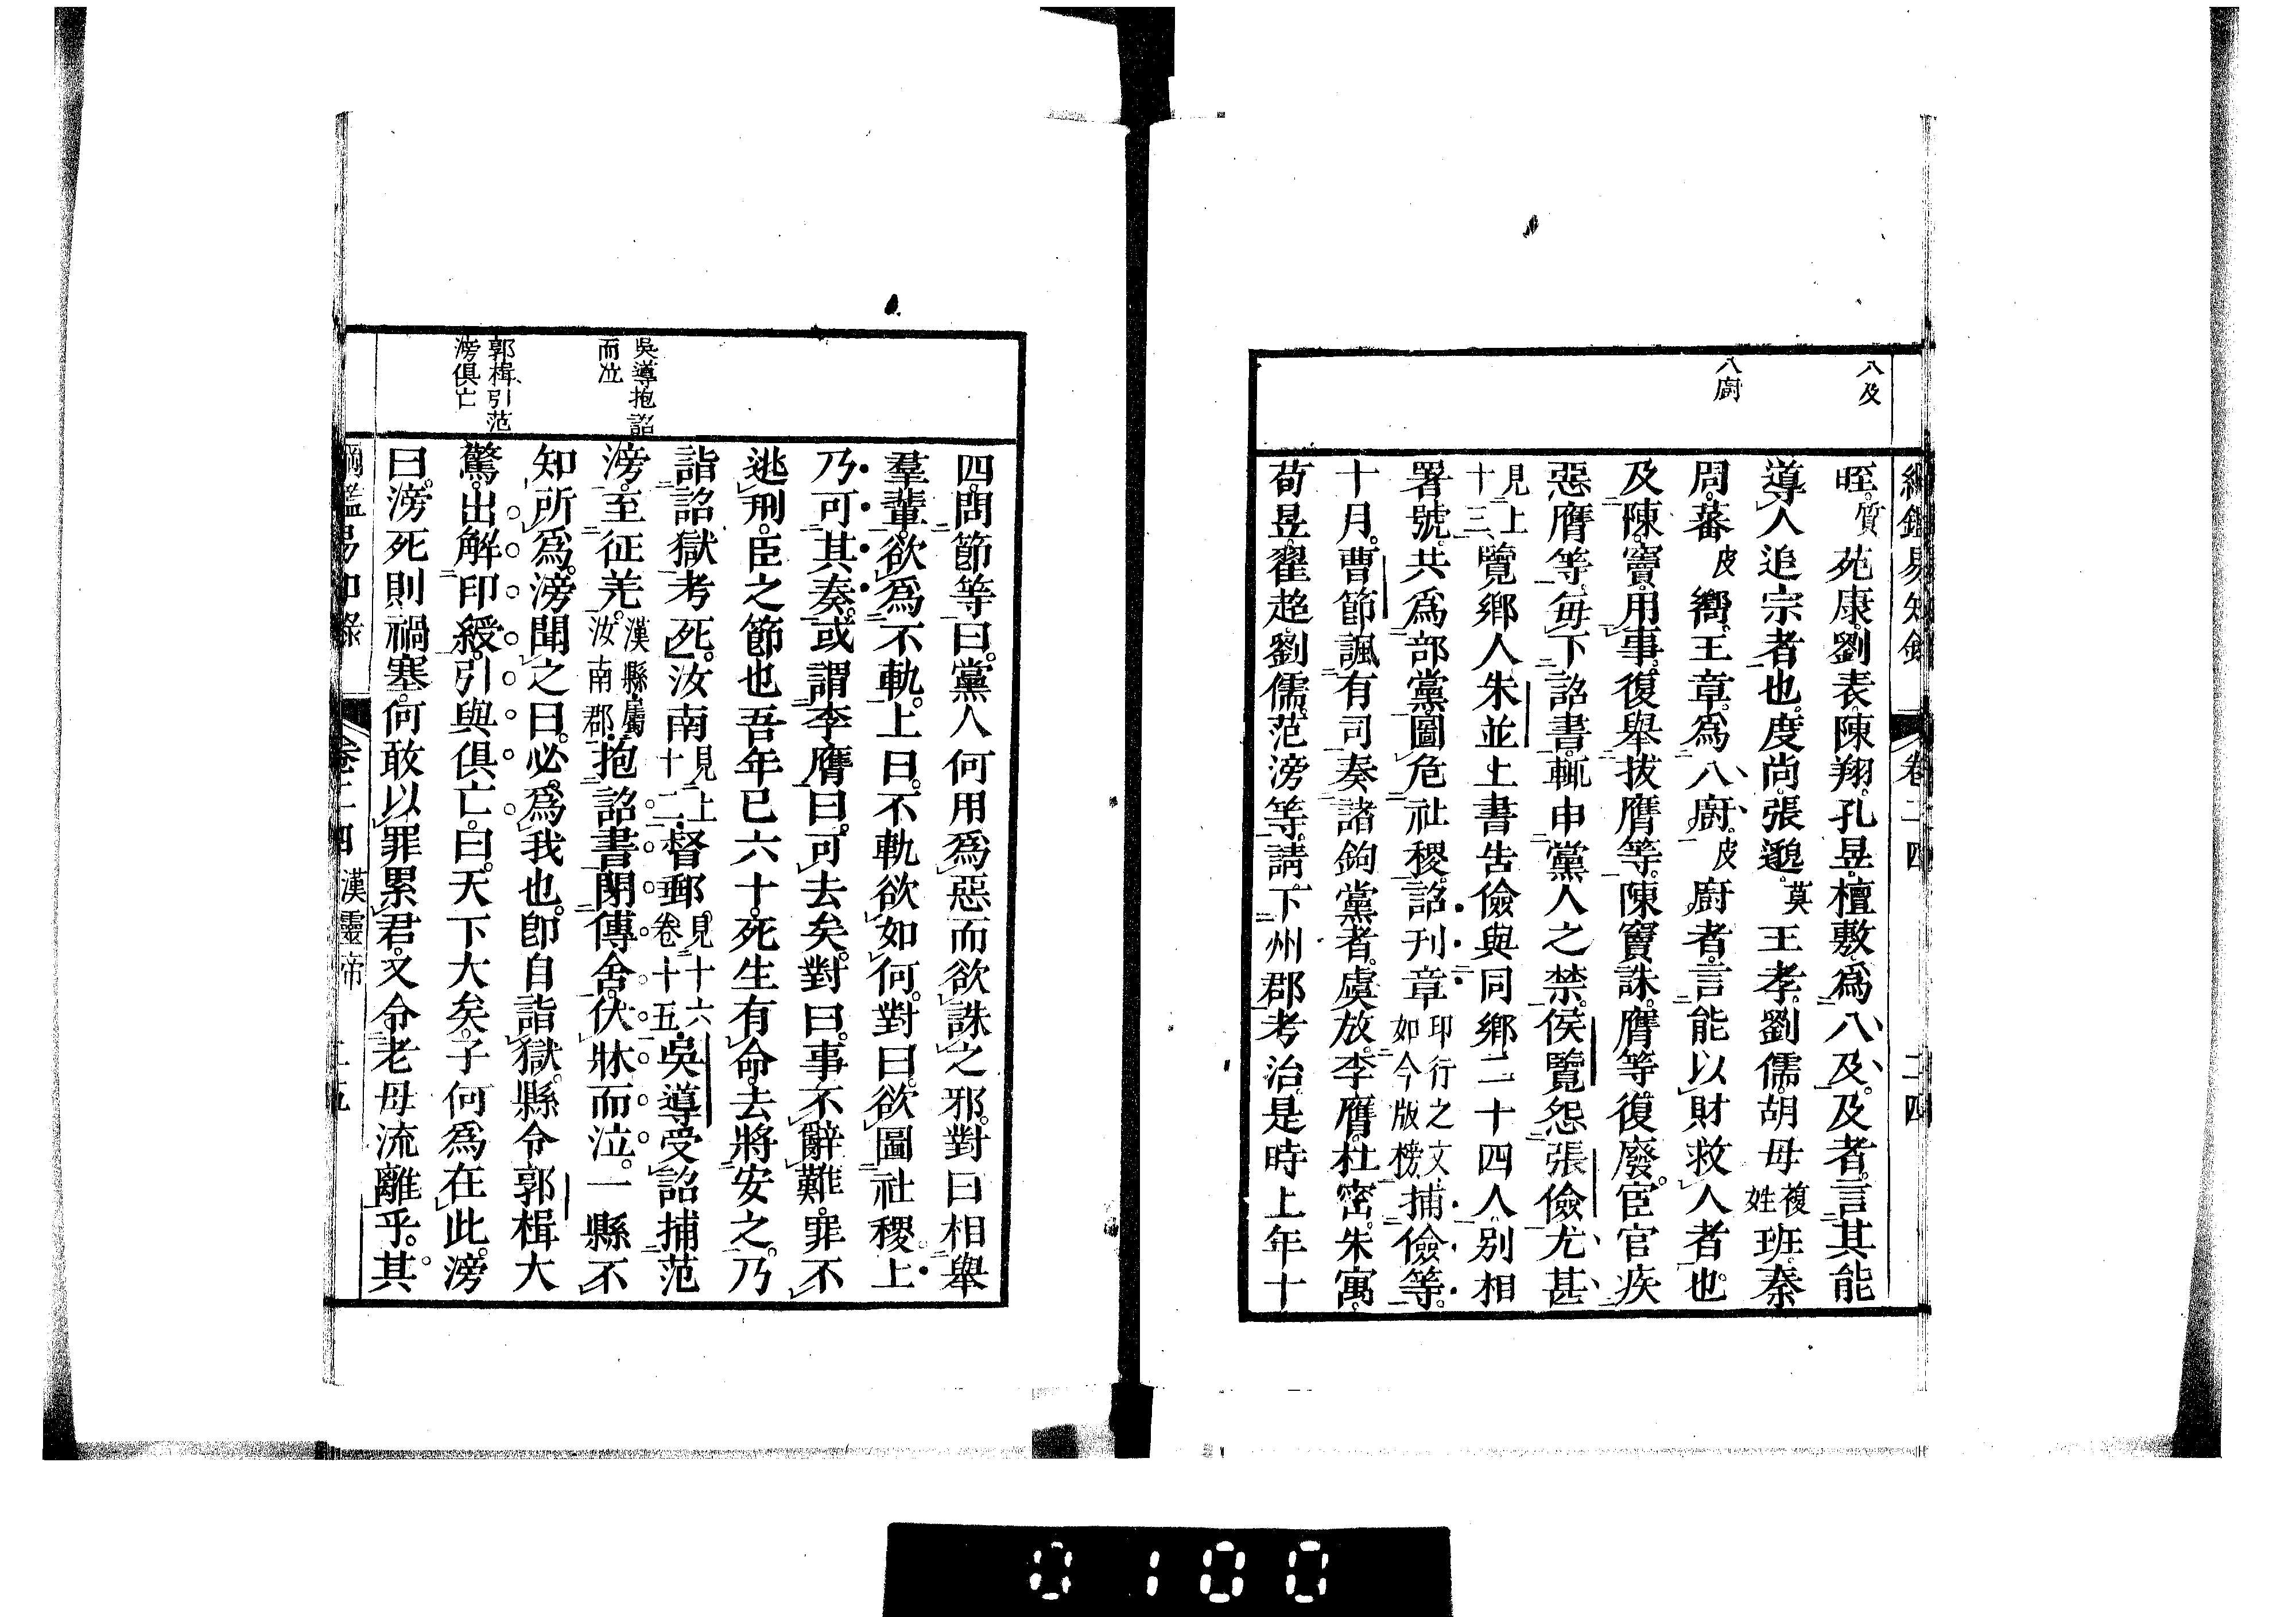 綱鑑易知錄 卷二四 二四
八及
八廚
晊質苑康劉表陳翔孔昱檀敷爲八及及者言其能
導人追宗者也度尚張邈莫王孝劉儒胡母複姓班秦
周蕃皮嚮王章爲八廚皮廚者言能以財救人者也
及陳竇用事復舉拔膺等陳竇誅膺等復廢宦官疾
惡膺等每下詔書輒申黨人之禁侯覽怨張儉尤甚
見上十三覽鄉人朱並上書告儉與同鄉二十四人別相
署號共爲部黨圖危社稷詔刊章印行之文如今版榜捕儉等
十月曹節諷有司奏諸鉤黨者虞放李膺杜密朱寓
荀昱翟超劉儒范滂等請下州郡考治是時上年十
吳導抱詔而泣
郭楫引范滂俱亡
四問節等曰黨人何用爲惡而欲誅之邪對曰相舉
羣輩欲爲不軌上曰不軌欲如何對曰欲圖社稷上
乃可其奏或謂李膺曰可去矣對曰事不辭難罪不
逃刑臣之節也吾年已六十死生有命去將安之乃
詣詔獄考死汝南見上十二督郵見十六卷十五吳導受詔捕范
滂至征羌漢縣屬汝南郡抱詔書閉傳舍伏牀而泣一縣不
知所爲滂聞之曰必爲我也卽自詣獄縣令郭楫大
驚出解印綬引與俱亡曰天下大矣子何爲在此滂
曰滂死則禍塞何敢以罪累君又令老母流離乎其
綱鑑易知錄 卷二四 漢靈帝 二五
0100